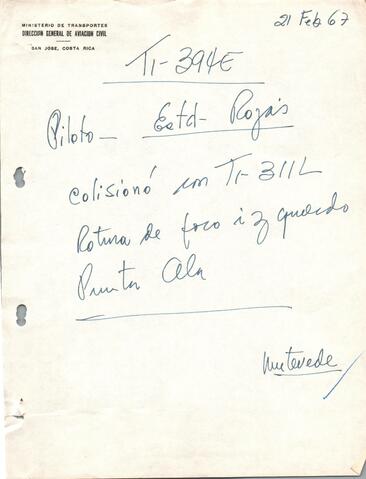 MINISTERIO DE TRANSPORTES
DIRECCION GENERAL DE AVIACION CIVIL
SAN JOSE, COSTA RICA
21 Feb 67
TI-394E
Piloto- Rojas
colisionó con TI-311L
Rotura de foco izquierdo
Punta Ala